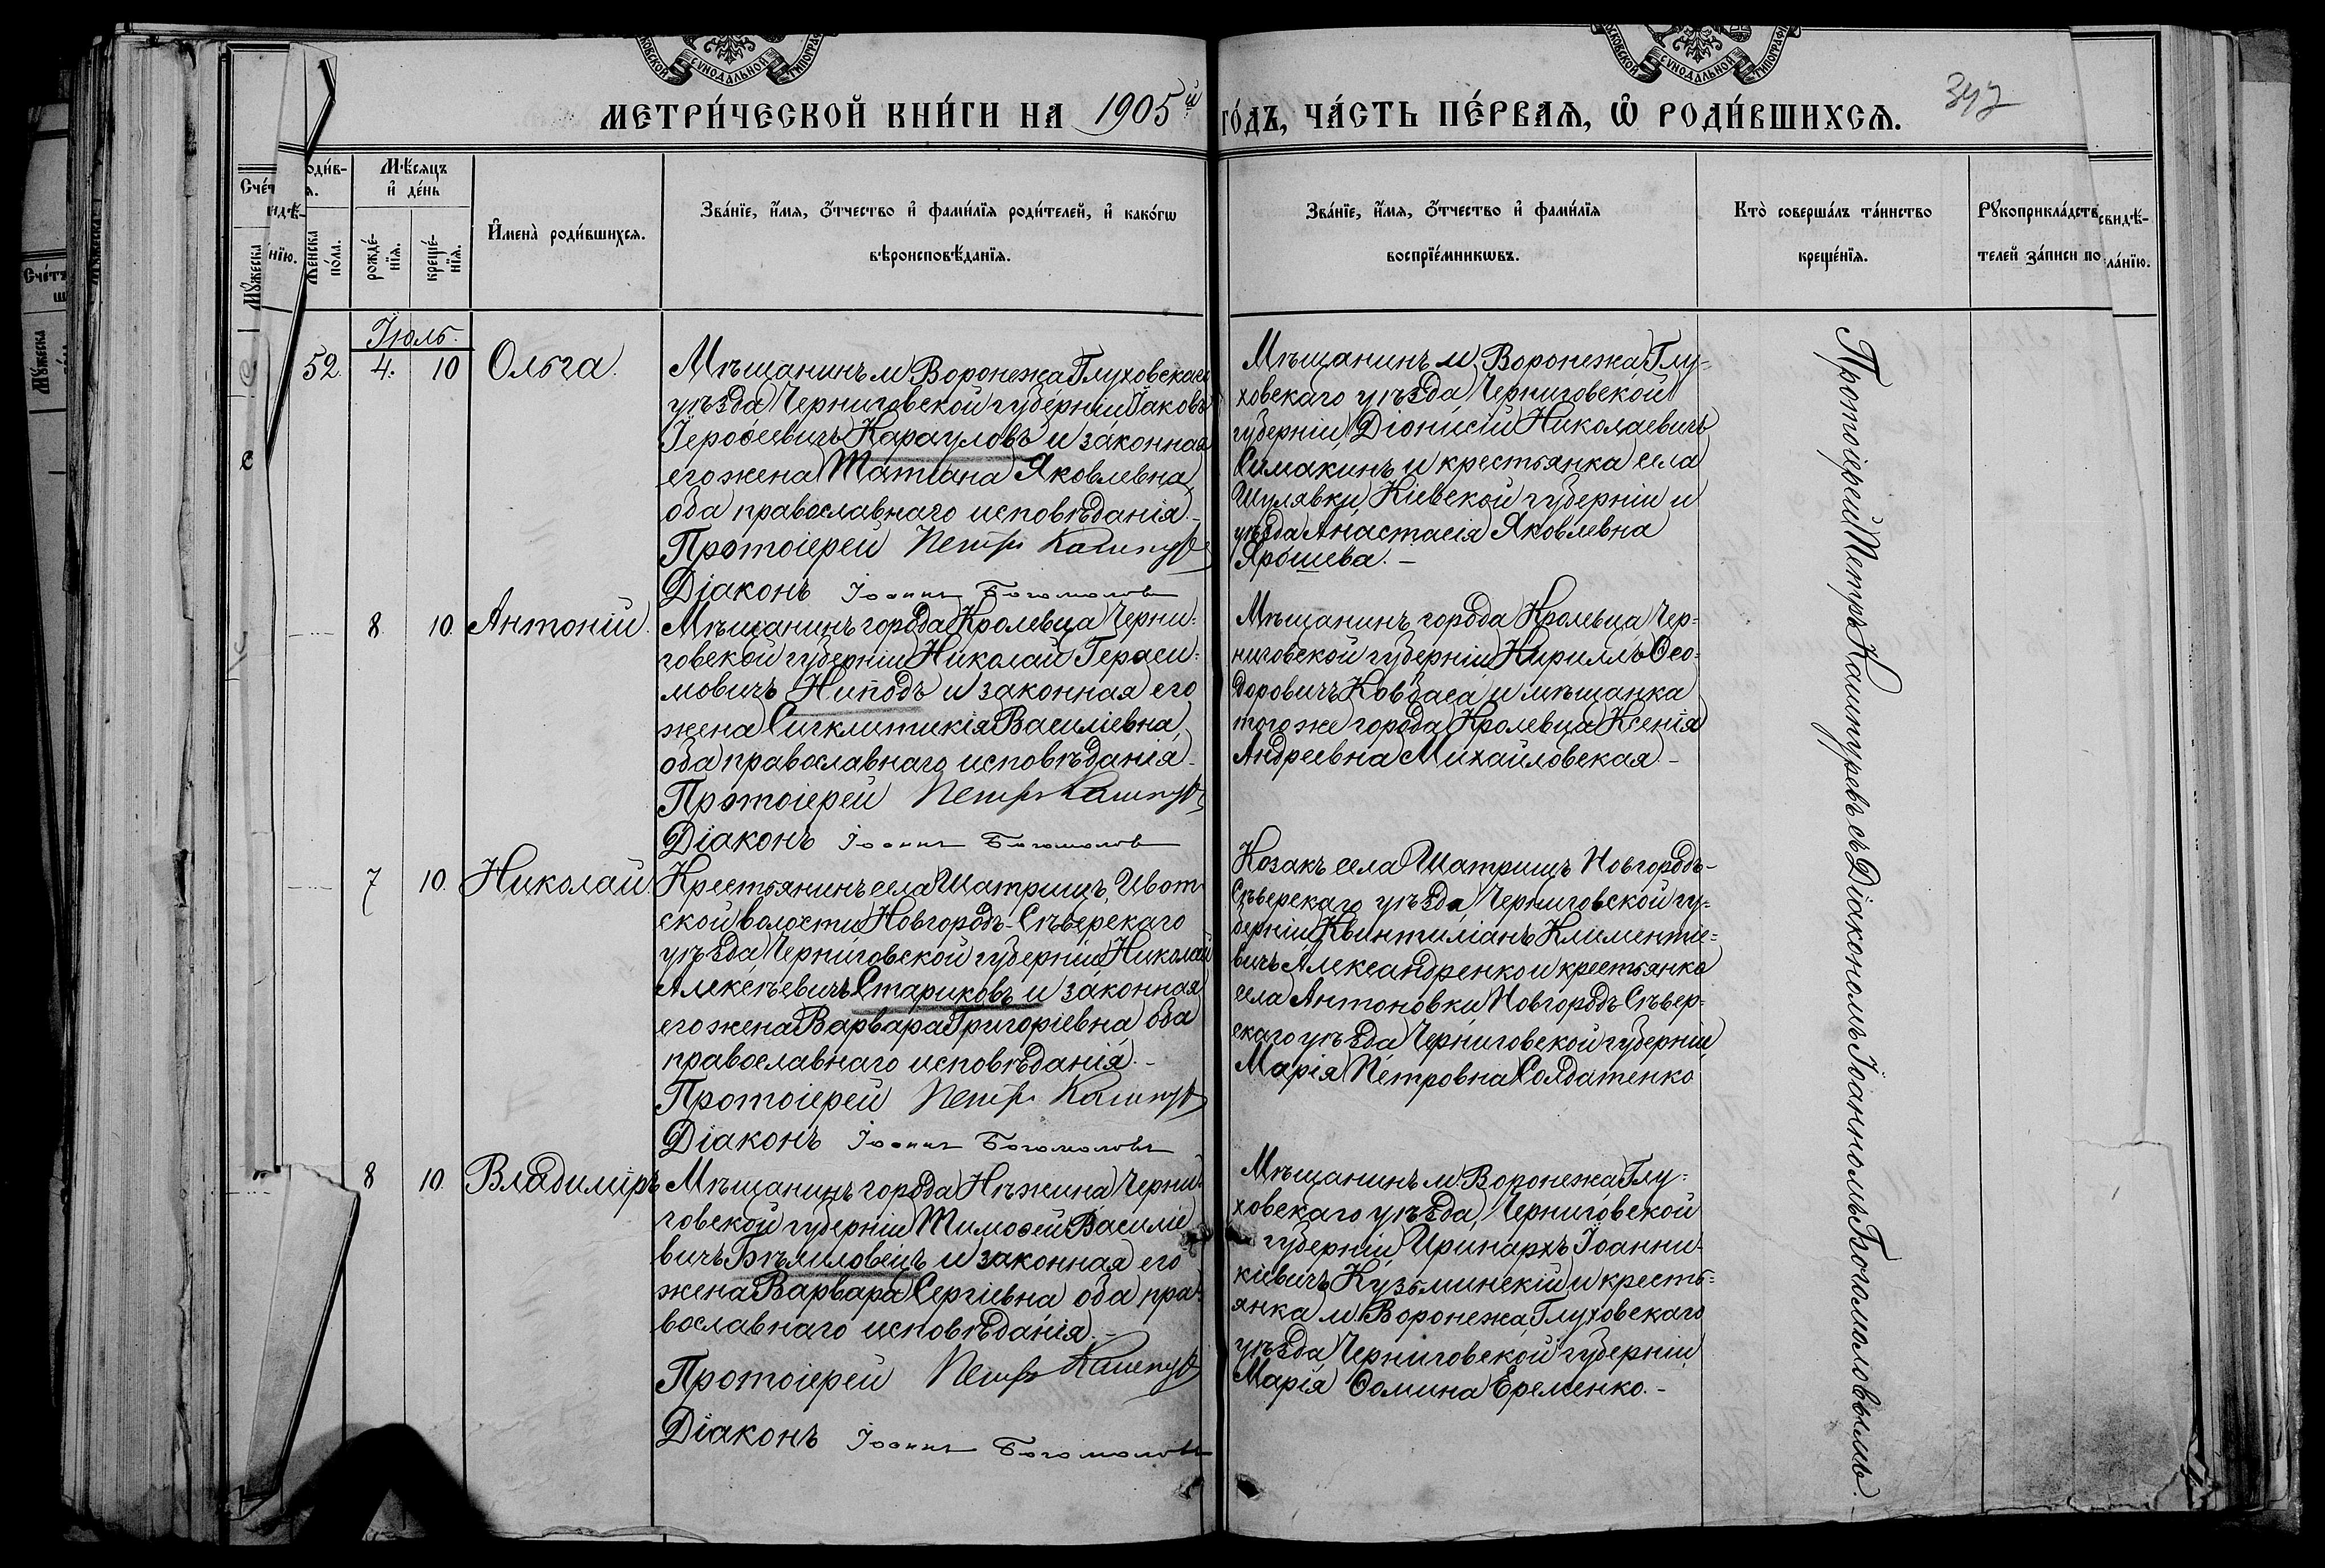 МЕТРИ́ЧЕСКОЙ КНИ́ГИ НА 1905й ГО́ДЪ, ЧА́СТЬ ПЕ́РВАЯ, Ѡ҆ РОДИ́ВШИХСЯ.
397
Мѣ́сяцъ и҆ де́нь
Же́нска по́ла.
рожде́нїя.
креще́нїя.
И҆мена̀ роди́вшихся.
Зва́нїе, и҆́мя, ѻ҆́тчество и҆ фами́лїя роди́телей, и҆ како́гѡ
вѣроисповѣ́данїя.
Зва́нїе, и҆́мя, ѻ҆́тчество и҆ фами́лїя
воспрїе́мникѡвъ.
Кто̀ соверша́лъ та́инство
креще́нїя.
Рꙋкоприкла́дств
свидѣ-
телей за́писи по
ла́нїю.
Іюль.
52. 4. 10 Ольга.
Мѣщанинъ м. Воронежа Глуховскаго
уѣзда Черниговской губерніи Іаковъ
Іероѳеевичъ Карауловъ и законная
его жена Татіана Яковлевна,
оба православнаго исповѣданія.-
Протоіерей Петръ Каши
Діаконъ Іоаннъ Богомоловъ
Мѣщанинъ м. Воронежа Глу-
ховскаго уѣзда, Черниговской
губерніи, Діонисій Николаевичъ
Симакинъ и крестьянка села
Шулявки, Кіевской губерніи и
уѣзда Анастасія Яковлевна
Ярошева.-
8. 10. Антоній.
Мѣщанинъ города Кролевца Черни-
говской губерніи Николай Гераси-
мовичъ Ниподъ и законная его
жена Сигклитикія Василіевна,
оба православнаго исповѣданія.-
Протоіерей Петръ
Діаконъ Іоаннъ Богомоловъ
Мѣщанинъ города Кролевца Чер-
ниговской губерніи Кириллъ Ѳео-
доровичъ Ковбаса и мѣщанка
того же города Кролевца Ксенія
Андреевна Михайловская.-
7 10. Николай.
Крестьянинъ села Шатрищъ, Ивот-
ской волости Новгородъ-Сѣверскаго
уѣзда Черниговской губерніи Николай
Алексѣевичъ Стариковъ и законная
его жена Варвара Григоріевна, оба
православнаго исповѣданія.-
Протоіерей Петръ
Діаконъ Іоаннъ Богомоловъ
Козакъ села Шатрищъ Новгородъ-
Сѣверскаго уѣзда, Черниговской гу-
берніи Квинтиліанъ Климентіе-
вичъ Александренко и крестьянка
села Антоновки Новгородъ Сѣвер-
скаго уѣзда Черниговской губерніи
Марія Петровна Солдатенко
8 10. Владиміръ
Мѣщанинъ города Нѣжина Черни-
говской губерніи Тимоѳей Василіе
вичъ Бѣлиловецъ и законная его
жена Варвара Сергіевна оба пра-
вославнаго исповѣданія.-
Протоіерей Петръ
Діаконъ Іоаннъ Богомоловъ
Мѣщанинъ м. Воронежа Глу-
ховскаго уѣзда, Черниговской
губерніи Иринархъ Іоанни-
кіевичъ Кузьминскій и кресть-
янка м. Воронежа Глуховскаго
уѣзда Черниговской губерніи
Марія Ѳомина Еременко.-
Протоіерей Петръ Кашпуревъ съ Діакономъ Іоанномъ Богомоловымъ.